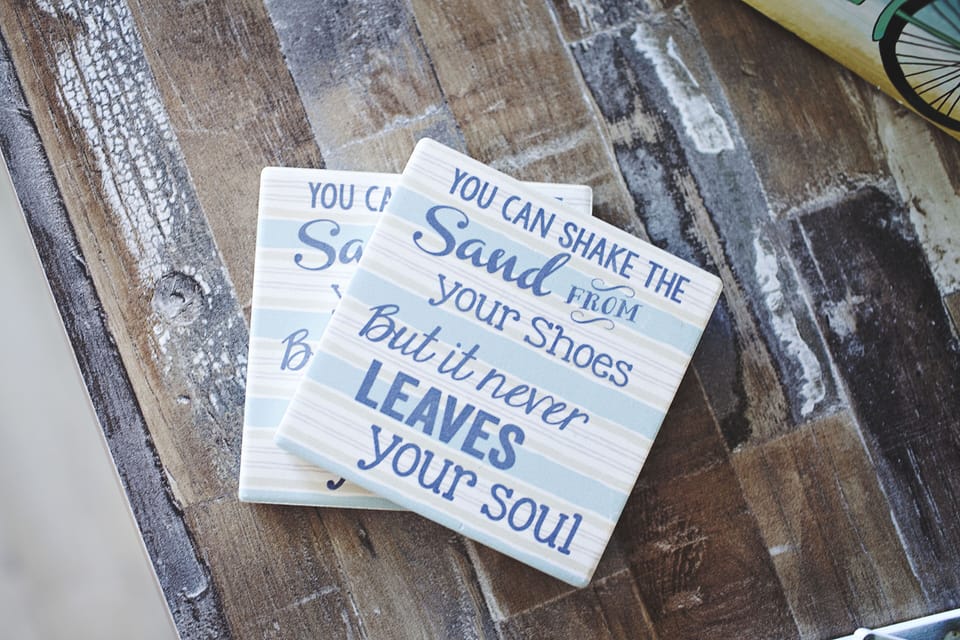 YOU CAN SHAKE THE
Sand FROM
your shoes
But it never
LEAVES
your soul
YOU CA
Sa
y
B
y